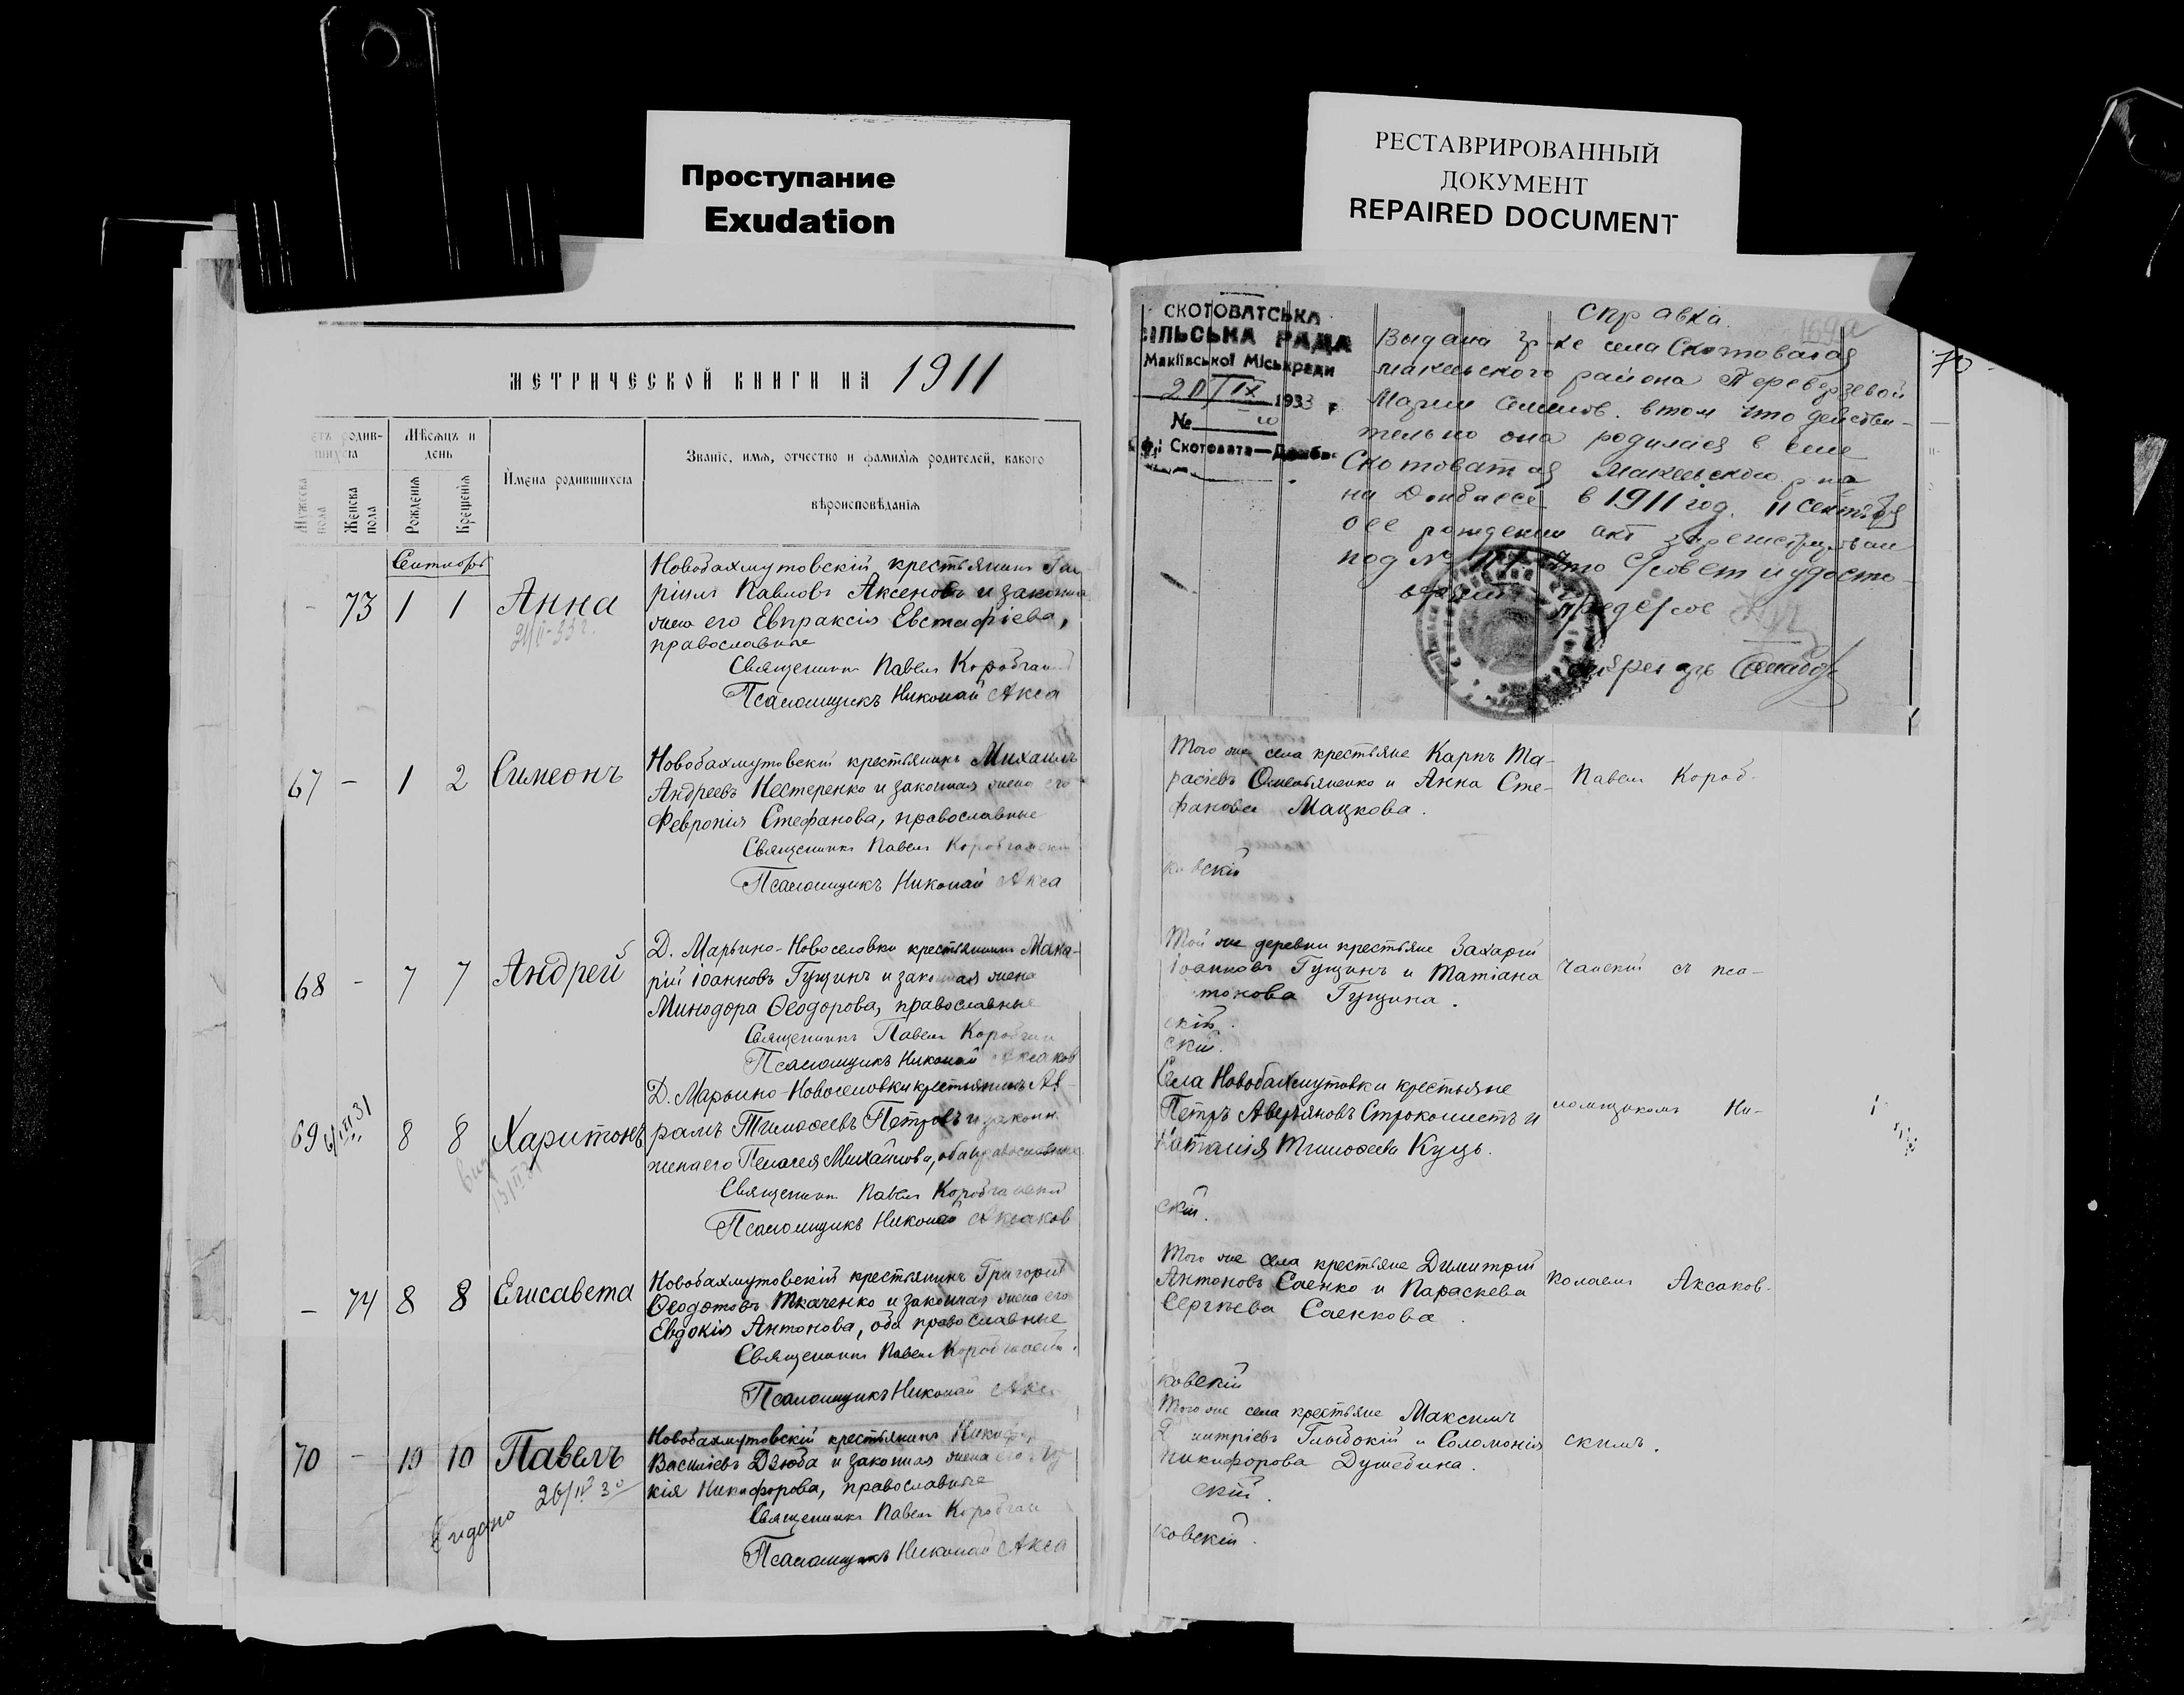 Проступание
Exudation
РЕСТАВРИРОВАННЫЙ
ДОКУМЕНТ
REPAIRED DOCUMENT
МЕТРИЧЕСКОЙ КНИГИ НА 1911
Мѣсяцъ и
день
Мужеска
пола
Женска
пола
Рожденія
Крещенія
Имена родившихся
Званіе, имя, отчество и фамилія родителей, какого
вѣроисповѣданія
Новобахмутовскій крестьянинъ
73 1 1 Анна
Павловъ Аксеновъ и законная
его Евпраксія Евстафіева,
православные
Священникъ Павелъ
Псаломщикъ Николай Акса
67 - 1 2 Симеонъ
Новобахмутовскій крестьянинъ Михаилъ
Андреевъ Нестеренко и законная жена его
Февронія Стефанова, православные
Священникъ Павелъ
Псаломщикъ Николай Акса
68 - 7 7 Андрей
Д. Марьино-Новоселовки крестьянинъ Мака-
рій Іоанновъ Гущинъ и законная жена
Минодора Ѳеодорова, православные
Священникъ Павелъ
Псаломщикъ Николай Аксаков
69 8 8 Харитонъ
Д. Марьино-Новоселовки крестьянинъ Ав-
рамъ Тимоѳеевъ Петровъ и законн.
жена его Пелагея Михайлова, оба православные
Священникъ Павелъ
Псаломщикъ Николай Аксаков
- 74 8 8 Елисавета
Новобахмутовскій крестьянинъ Григорій
Ѳеодотовъ Ткаченко и законная жена его
Евдокія Антонова, оба православные
Священникъ Павелъ
Псаломщикъ Николай
70 - 10 10 Павелъ
Новобахмутовскій крестьянинъ
Василіевъ Дзюба и законная жена его
кія Никифорова, православные
26/IV 30
Священникъ Павелъ
Псаломщикъ Николай Акса
СКОТОВАТСЬКА
СІЛЬСЬКА РАДА
Макіївської Міськради
20/IX 1933 г
№
Скотовата—Донбас
Справка
169а
Выдана гр-ке села Скотоватая
макеевского района Переверзевой
Марии Семенов. в том что действи-
тельно она родилася в селе
Скотоватая Макеевского р-на
на Донбассе в 1911 год. 11 сентября
ее рождении акт зарегистрирован
под № что С/совет и удосто-
веряет
Предс/сов
Секретарь
70
Того же села крестьяне Карпъ Та-
расіевъ Омельяненко и Анна Сте-
фанова Мацкова.
Павелъ Короб-
ковскій
Той же деревни крестьяне Захарій
Іоанновъ Гущинъ и Татіана
Гущина.
чанскій съ пса-
скій.
скій.
Села Новобахмутовки крестьяне
Петръ Аверьяновъ Строкошистъ и
Наталія Тимоѳеева Куць.
ломщикомъ Ни-
скій.
Того же села крестьяне Димитрій
Антоновъ Саенко и Параскева
Сергѣева Саенкова
колаемъ Аксаков-
ковскій
Того же села крестьяне Максимъ
Димитріевъ Глыбокій и Соломонія
Никифорова Душебина.
скимъ.
скій.
ковскій.